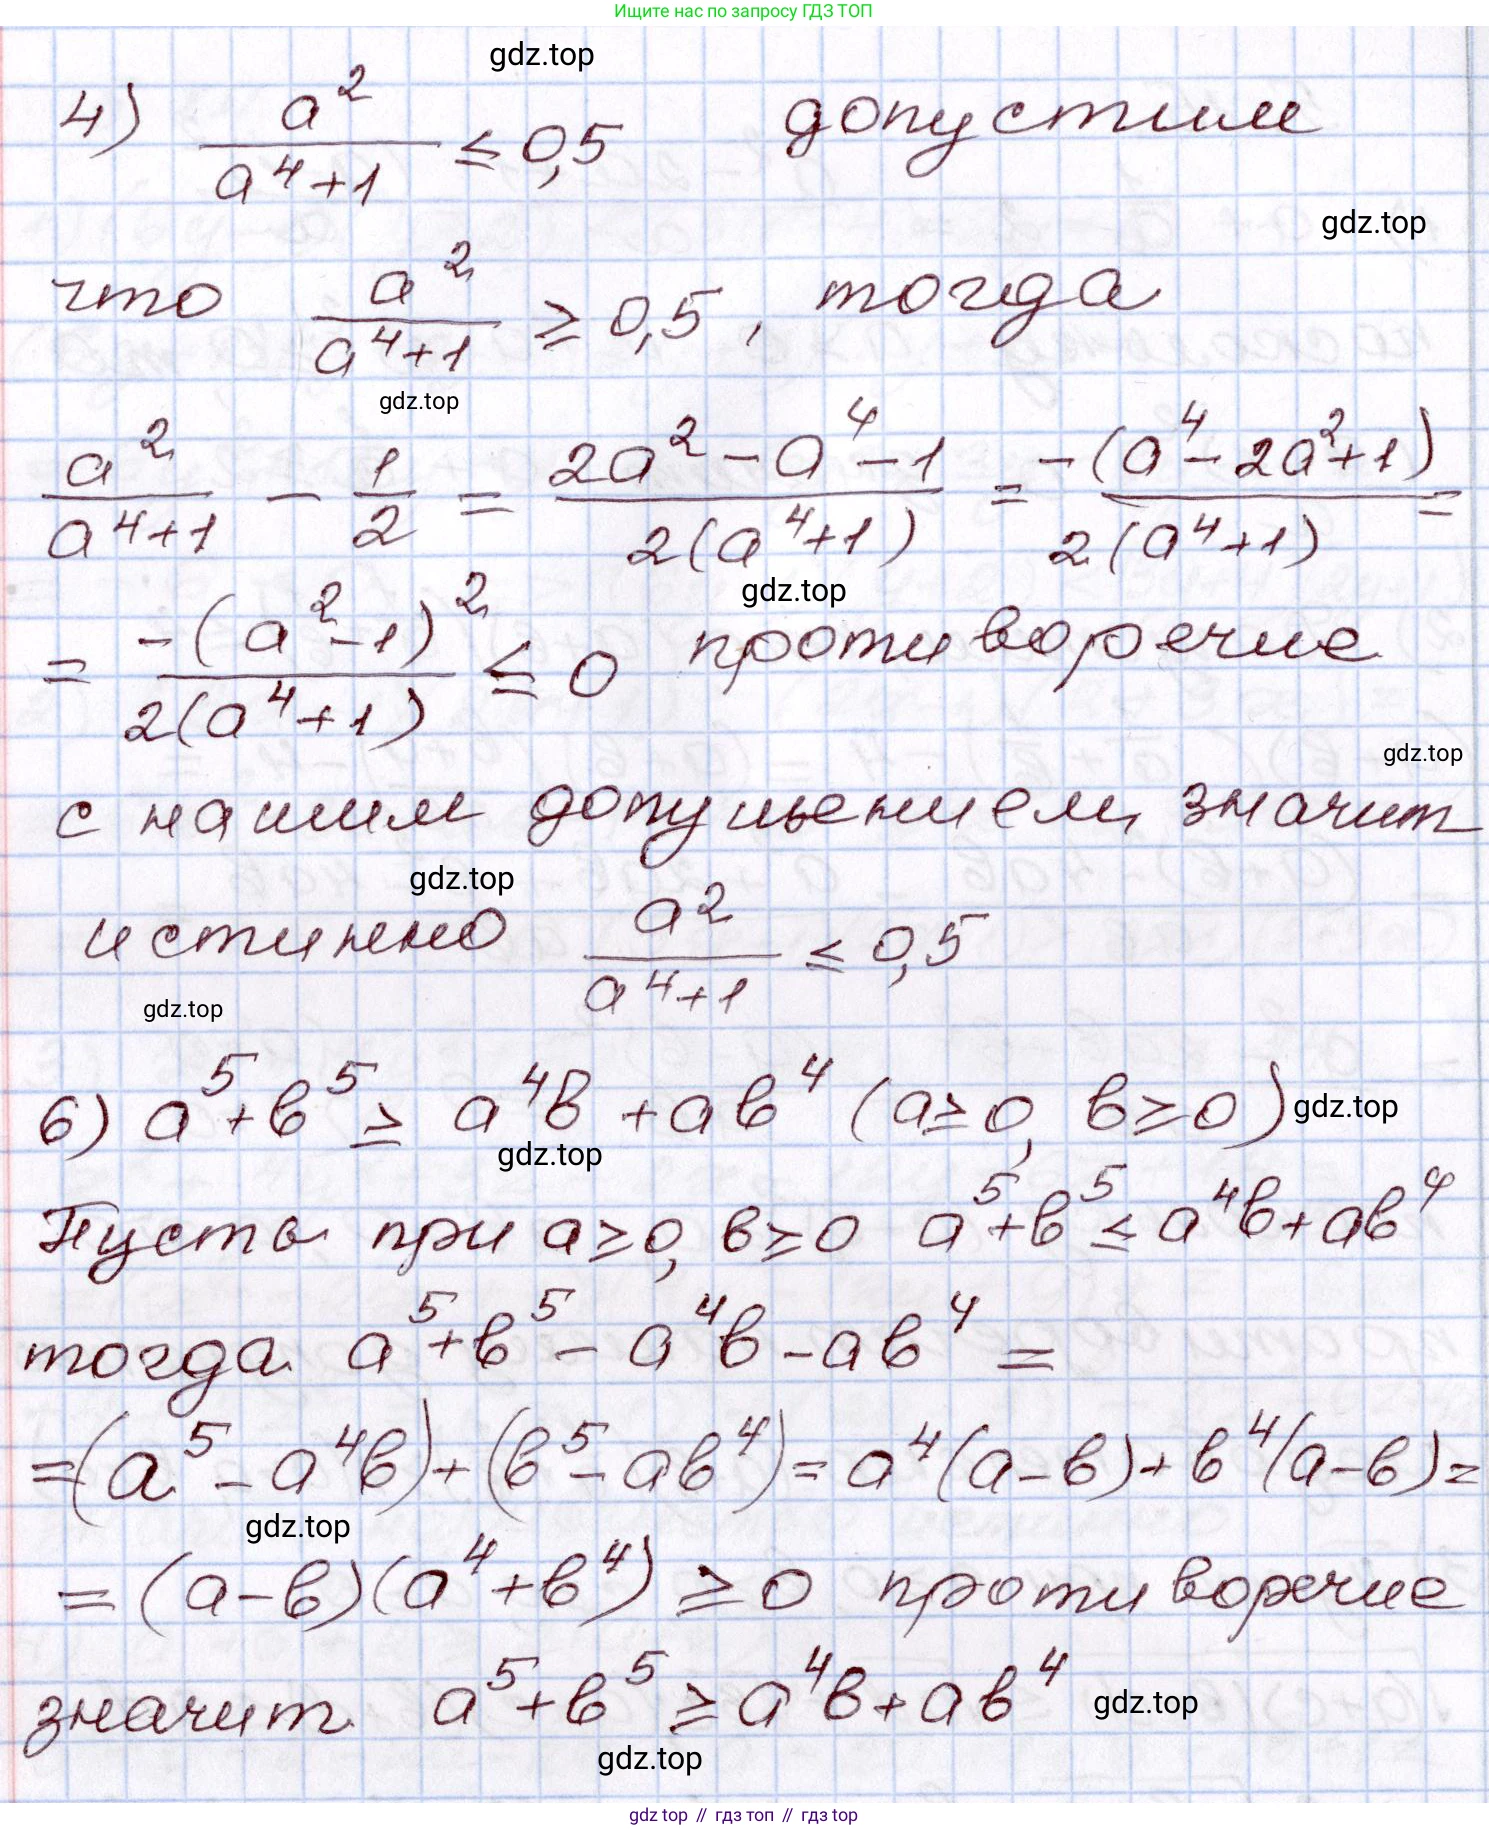 Ищите нас по запросу ГДЗ ТОП
gdz.top
4) a²/(a⁴+1) ≤ 0,5 допустим
gdz.top
что a²/(a⁴+1) ≥ 0,5, тогда
gdz.top
a²/(a⁴+1) - 1/2 = (2a² - a⁴ - 1)/(2(a⁴+1)) = -(a⁴ - 2a² + 1)/(2(a⁴+1)) =
gdz.top
= -(a² - 1)²/(2(a⁴+1)) ≤ 0 противоречие
gdz.top
с нашим допущением, значит
gdz.top
истинно a²/(a⁴+1) ≤ 0,5
gdz.top
6) a⁵+b⁵ ≥ a⁴b + ab⁴ (a≥0, b≥0) gdz.top
gdz.top
Пусть при a≥0, b≥0 a⁵+b⁵ ≤ a⁴b+ab⁴
тогда a⁵+b⁵ - a⁴b - ab⁴ =
=(a⁵ - a⁴b)+(b⁵ - ab⁴) = a⁴(a-b) + b⁴(a-b) =
gdz.top
= (a-b)(a⁴+b⁴) ≥ 0 противоречие
значит a⁵+b⁵ ≥ a⁴b+ab⁴ gdz.top
gdz.top
gdz top // гдз топ // gdz top